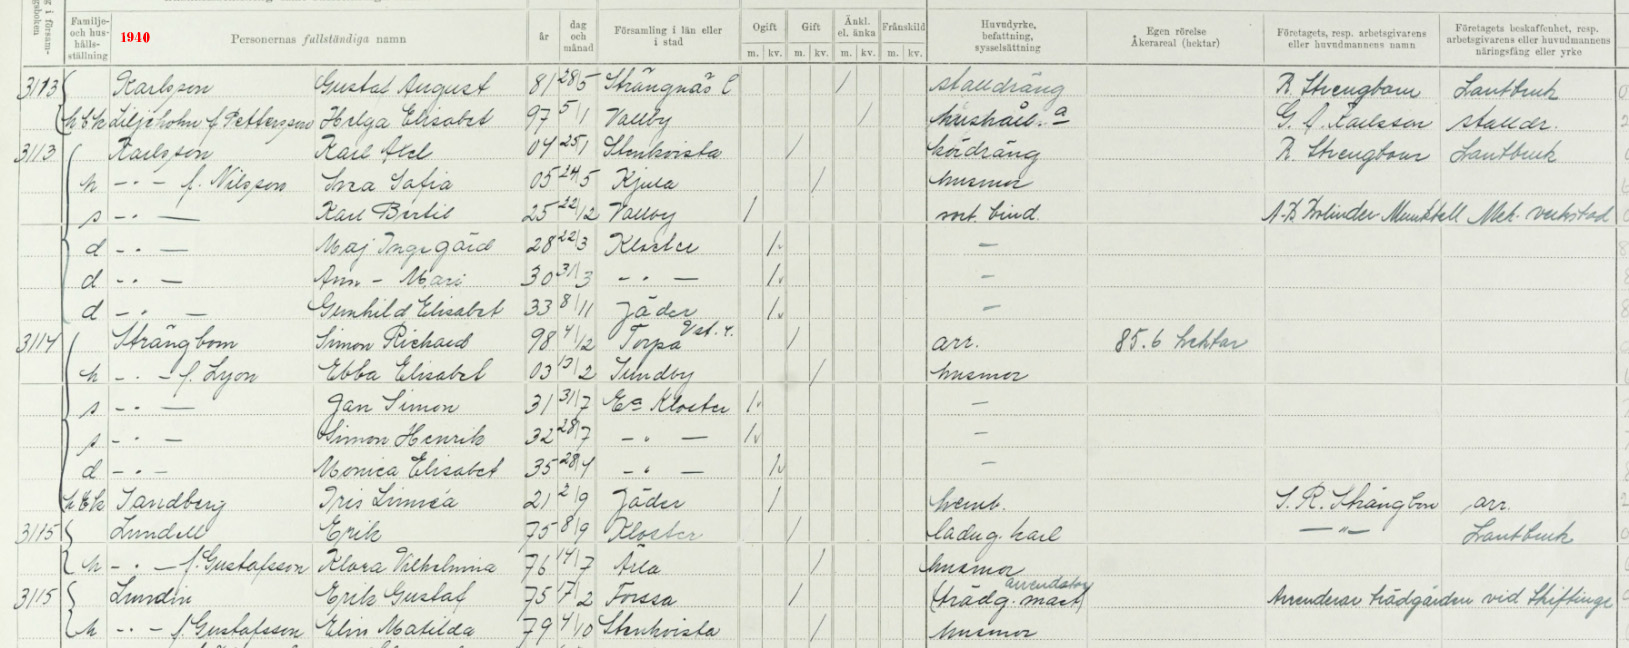 i försam-
gsboken
Familje-
och hus-
hålls-
ställning
1940
Personernas fullständiga namn
år
dag
och
månad
Församling i län eller
i stad
Ogift
Gift
Änkl.
el. änka
Frånskild
m. kv. m. kv. m. kv. m. kv.
Huvudyrke,
befattning,
sysselsättning
Egen rörelse
Åkerareal (hektar)
Företagets, resp. arbetsgivarens
eller huvudmannens namn
Företagets beskaffenhet, resp.
arbetsgivarens eller huvudmannens
näringsfång eller yrke
3113 Karlsson Gustaf August 81 28/5 Strängnäs / stalldräng R. Strengbom Lantbruk
Liljeholm f. Pettersson Helga Elisabet 97 5/1 Vallby / hushåll.a G. A. Karlsson stalldr.
3113 Karlsson Karl Axel 04 25/1 Stenkvista / kördräng R. Strengbom Lantbruk
h - " - f. Nilsson Inza Sofia 05 24/5 Kjula / husmor
s - " - Karl Bertil 25 22/12 Vallby / A.B. Bolinder Munktell Mek. verkstad
d - " - Maj Ingegärd 28 22/3 Kloster / -
d - " - Ann-Mari 30 31/3 - " - / -
d - " - Gunhild Elisabet 33 8/11 Jäder / -
3114 Strängbom Simon Richard 98 4/12 Torpa / arr. 85.6 hektar
h - " - f. Lyon Ebba Elisabet 03 13/2 Sundby / husmor
s - " - Jan Simon 31 31/7 Ea Kloster / -
s - " - Simon Henrik 32 28/7 - " - / -
d - " - Monica Elisabet 35 28/4 - " - / -
Sandberg Iris Linnéa 21 2/9 Jäder / hemb. S. R. Strängbom arr.
3115 Lundell Erik 75 8/9 Kloster / ladug. karl - " - Lantbruk
h - " - f. Gustafsson Klara Vilhelmina 76 14/7 Ärla / husmor
3115 Lundin Erik Gustaf 75 17/2 Forssa / (trädg. mäst) arrendator Arrenderar trädgården vid Skiftinge
h - " - f. Gustafsson Elin Matilda 79 4/10 Stenkvista / husmor